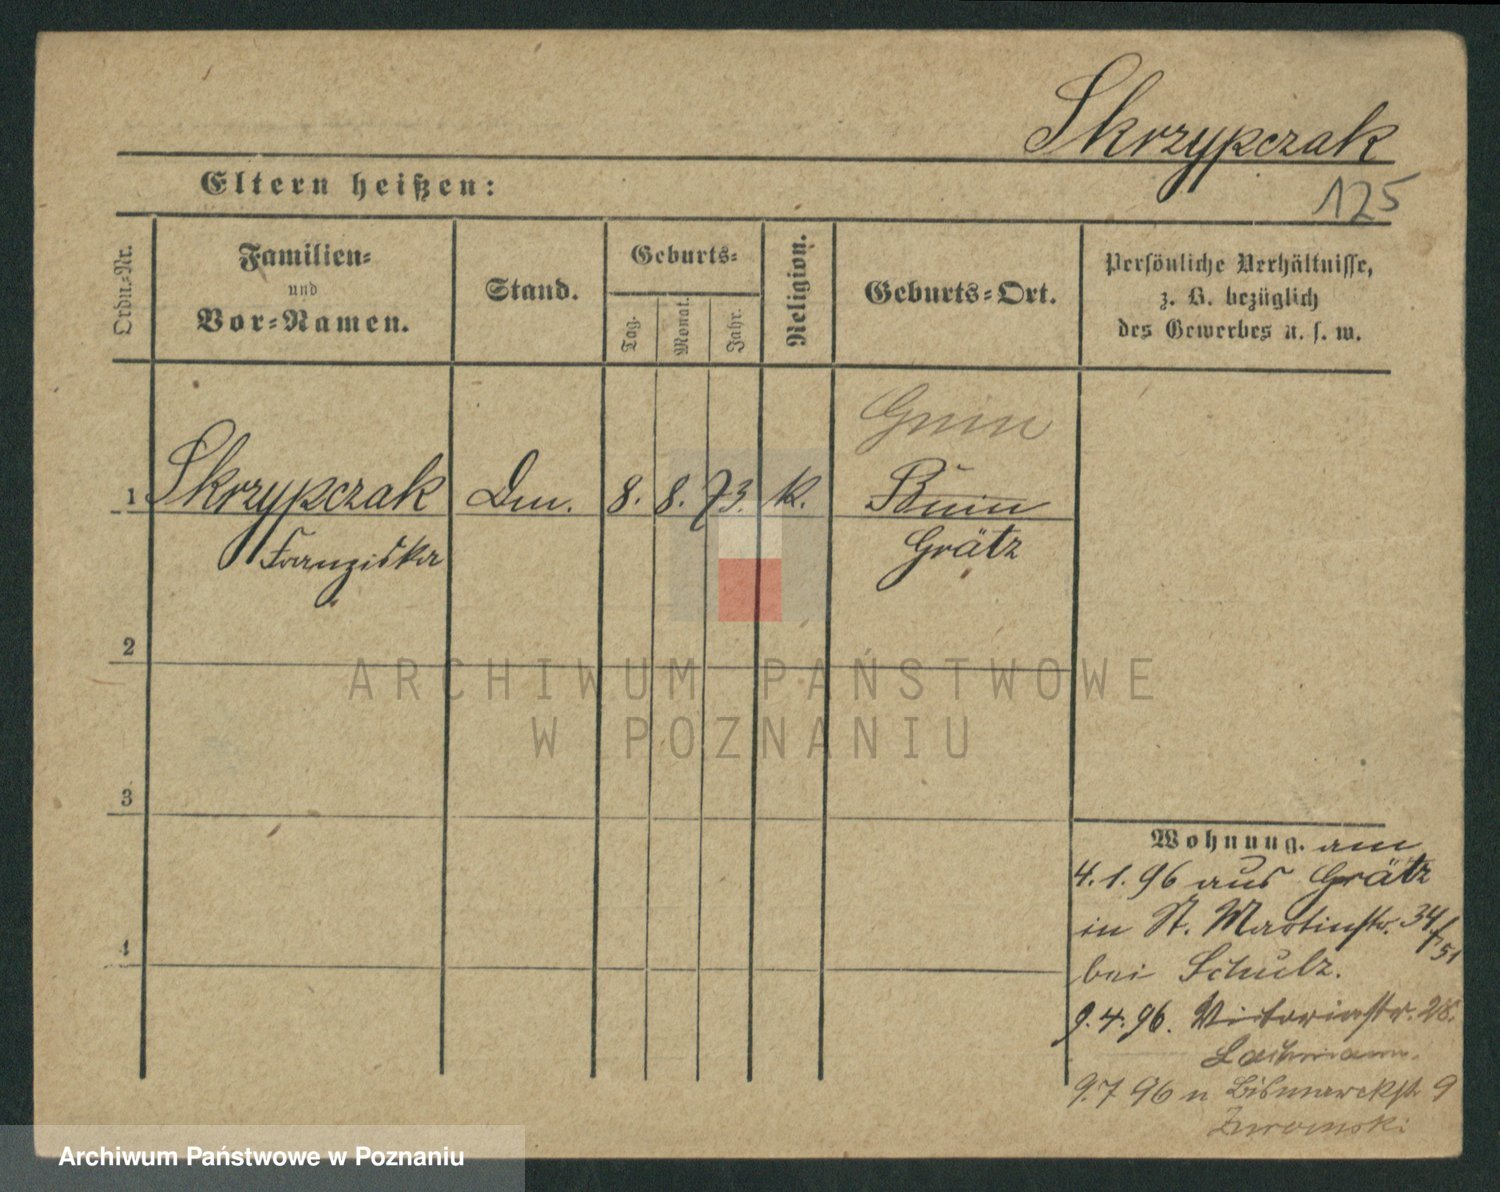 Skrzypczak
125
Eltern heißen:
Ordn.-Nr.
Familien-
und
Vor-Namen.
Stand.
Geburts-
Tag.
Monat.
Jahr.
Religion.
Geburts-Ort.
Persönliche Verhältnisse,
z. B. bezüglich
des Gewerbes u. s. w.
1 Skrzypczak 8. 8. 73. k. Buin
Franziska Grätz
2
3
4
Wohnung. am
4.1.96 aus Grätz
in St. Martinstr. 34/51
bei Schulz.
9.4.96. Victoriastr. 28.
Lachmann.
9.7 96 n Bismarckstr 9
Zuromski
ARCHIWUM PAŃSTWOWE
W POZNANIU
Archiwum Państwowe w Poznaniu